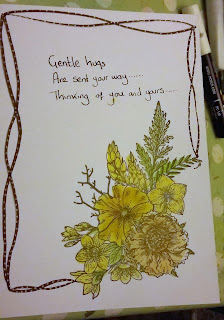 Gentle hugs
Are sent your way......
Thinking of you and yours.....